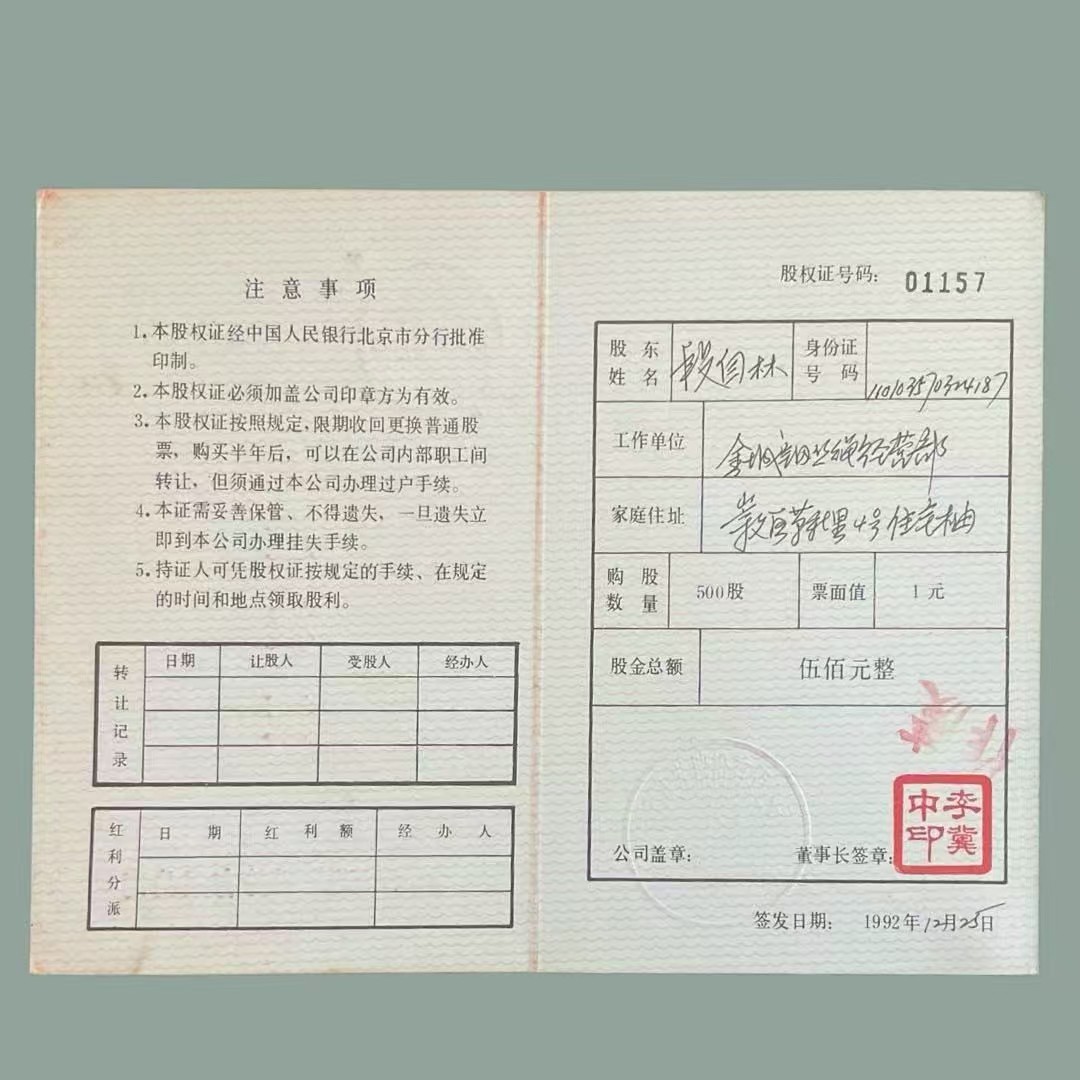 注意事项
1.本股权证经中国人民银行北京市分行批准
印制。
2.本股权证必须加盖公司印章方为有效。
3.本股权证按照规定,限期收回更换普通股
票,购买半年后,可以在公司内部职工间
转让,但须通过本公司办理过户手续。
4.本证需妥善保管、不得遗失,一旦遗失立
即到本公司办理挂失手续。
5.持证人可凭股权证按规定的手续、在规定
的时间和地点领取股利。
转让记录
日期 让股人 受股人 经办人
红利分派
日期 红利额 经办人
股权证号码: 01157
股东姓名 段 林 身份证号码 110103570324187
工作单位 金 钢丝绳经营部
家庭住址 里4号住宅
购股数量 500股 票面值 1元
股金总额 伍佰元整
作
公司盖章: 董事长签章:
李冀中印
签发日期: 1992年12月25日